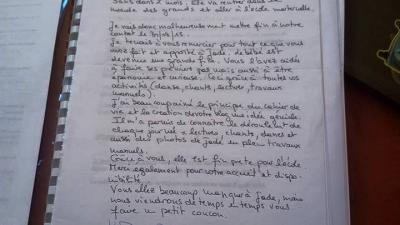 ans dans 2 mois. Elle va rentrer dans le
monde des grands et aller à l'école maternelle.
Je vais donc malheureusement mettre fin à notre
contrat le
Je tenais à vous remercier pour tout ce que vous
avez fait et apporté à Jade, de bébé est
devenue une grande fille. Vous l'avez aidé
à faire ses premiers pas mais aussi à être
épanouie et curieuse. Ceci grâce à toutes vos
activités (danse, chants, lecture, travaux
manuels).
J'ai beaucoup aimé le principe du cahier de
vie et la création de votre blog une idée géniale.
Il m'a permis de connaître le déroulement de
chaque journée : lectures, chants, danses et
aussi des photos de Jade en plein travaux
manuels.
Grâce à vous, elle est fin prête pour l'école
Merci également pour votre accueil et dispo-
nibilité.
Vous allez beaucoup manquer à Jade, mais
nous viendrons de temps en temps vous
faire un petit coucou.